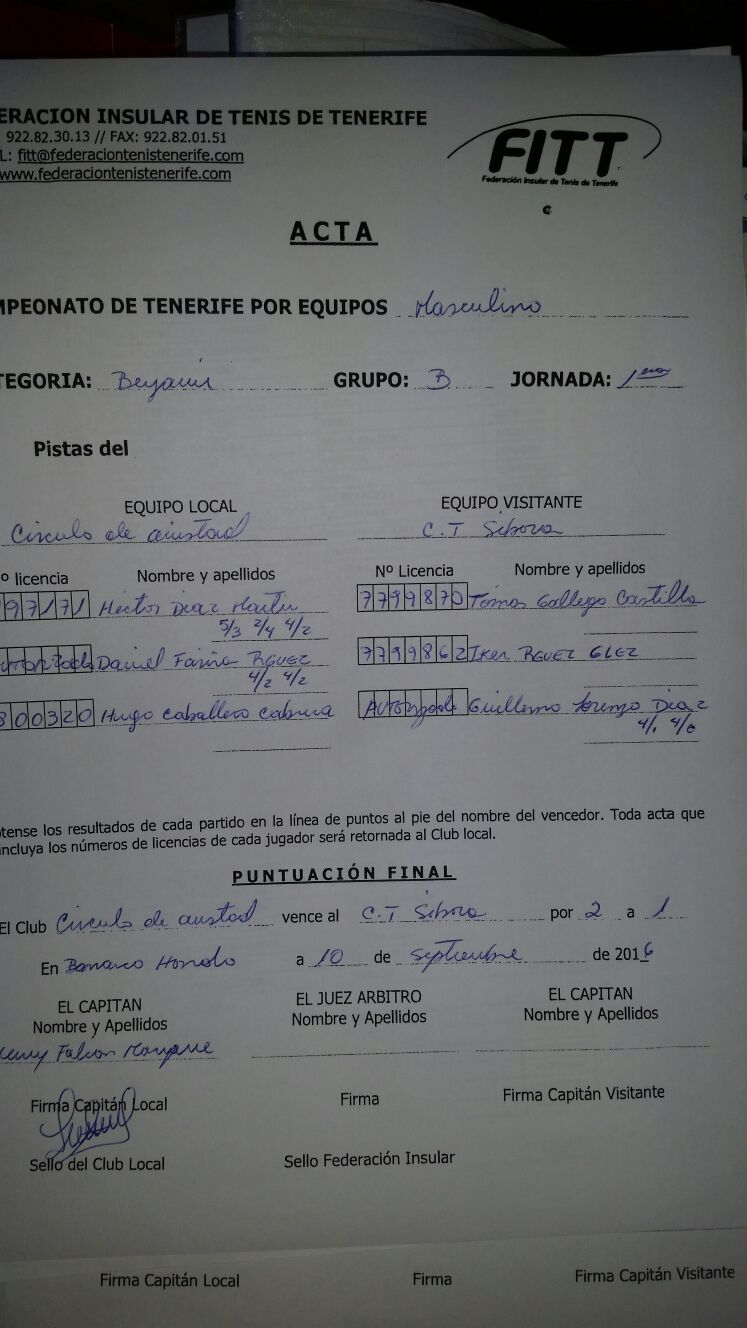 ERACION INSULAR DE TENIS DE TENERIFE
922.82.30.13 // FAX: 922.82.01.51
L: fitt@federaciontenistenerife.com
www.federaciontenistenerife.com
FITT
Federación Insular de Tenis de Tenerife
ACTA
MPEONATO DE TENERIFE POR EQUIPOS Masculino
TEGORIA: Benjamin GRUPO: B JORNADA: 1era
Pistas del
EQUIPO LOCAL EQUIPO VISITANTE
Circulo de amistad C.T Sibora
º licencia Nombre y apellidos Nº Licencia Nombre y apellidos
97171 Hector Diaz Martin 7799870 Tomas Gallego Castilla
5/3 2/4 4/2
Daniel Fariña RGUEZ 7799862 IKER RGUEZ GLEZ
4/2 4/2
800320 Hugo Caballero Cabrera Autorizado Guillermo Lorenzo Diaz
4/1 4/0
tense los resultados de cada partido en la línea de puntos al pie del nombre del vencedor. Toda acta que
incluya los números de licencias de cada jugador será retornada al Club local.
PUNTUACIÓN FINAL
El Club Circulo de amistad vence al C.T Sibora por 2 a 1
En Barranco Hondo a 10 de Septiembre de 2016
EL CAPITAN EL JUEZ ARBITRO EL CAPITAN
Nombre y Apellidos Nombre y Apellidos Nombre y Apellidos
Falcon
Firma Capitán Local Firma Firma Capitán Visitante
Sello del Club Local Sello Federación Insular
Firma Capitán Local Firma Firma Capitán Visitante